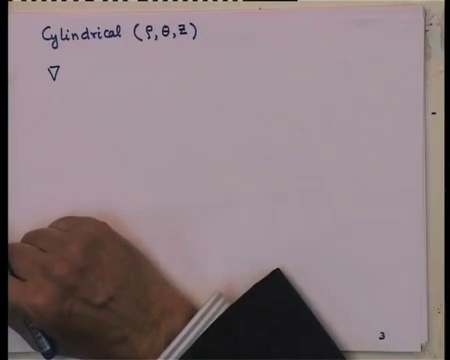 Cylindrical (ρ, θ, Z)
∇
3